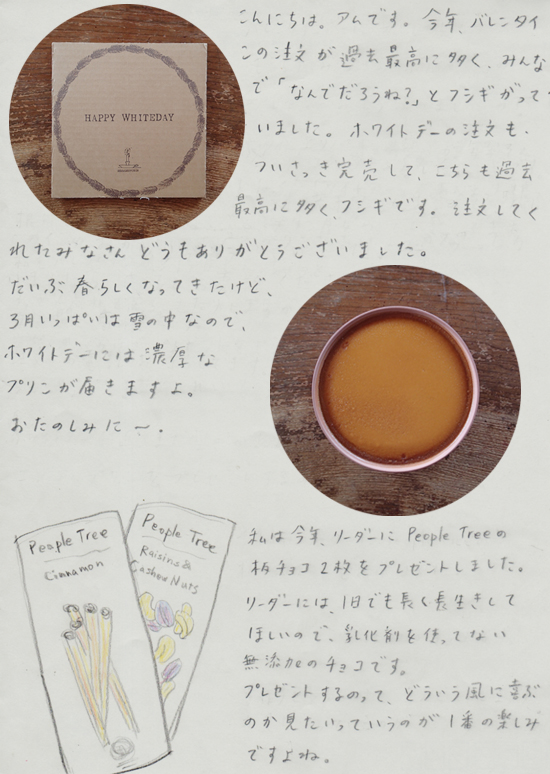 こんにちは。アムです。今年、バレンタイ
ンの注文が過去最高に多く、みんな
で「なんでだろうね?」とフシギがって
いました。ホワイトデーの注文も、
ついさっき完売して、こちらも過去
最高に多く、フシギです。注文してく
れたみなさん どうもありがとうございました。
HAPPY WHITEDAY
だいぶ春らしくなってきたけど、
3月いっぱいは雪の中なので、
ホワイトデーには濃厚な
プリンが届きますよ。
おたのしみに〜.
People Tree
Cinnamon
People Tree
Raisins &
Cashew Nuts
私は今年、リーダーに People Treeの
板チョコ2枚をプレゼントしました。
リーダーには、1日でも長く長生きして
ほしいので、乳化剤を使ってない
無添加のチョコです。
プレゼントするのって、どういう風に喜ぶ
のか見たいっていうのが1番の楽しみ
ですよね。